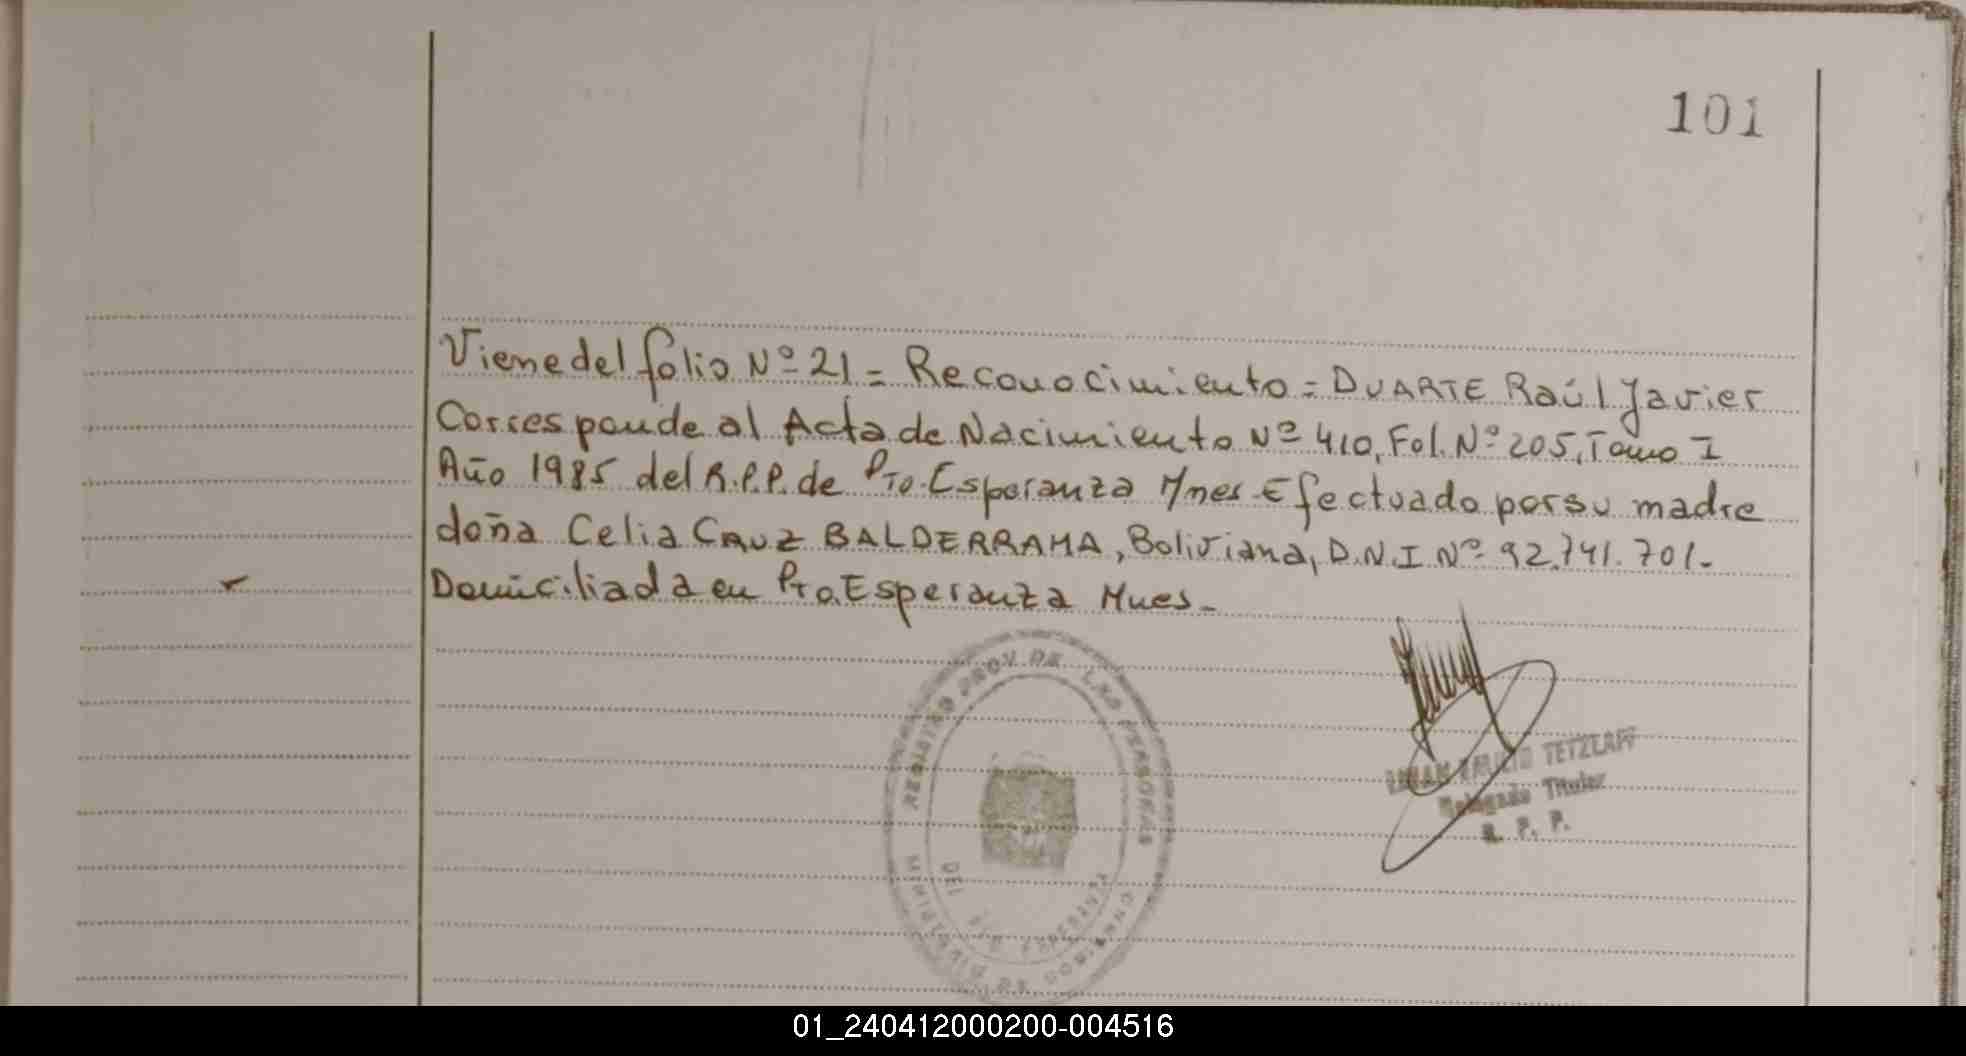 101
Viene del folio Nº 21 = Reconocimiento = DUARTE Raúl Javier
Corresponde al Acta de Nacimiento Nº 410, Fol. Nº 205, Tomo I
Año 1985 del R.P.P. de Pto. Esperanza Mnes Efectuado por su madre
doña Celia CRUZ BALDERRAMA, Boliviana, D.N.I Nº 92.741.701.-
Domiciliada en Pto. Esperanza Mnes -
REGISTRO PROV. DE LAS PERSONAS
EMILIO TETZLAFF
Delegado Titular
R. P. P.
01_240412000200-004516